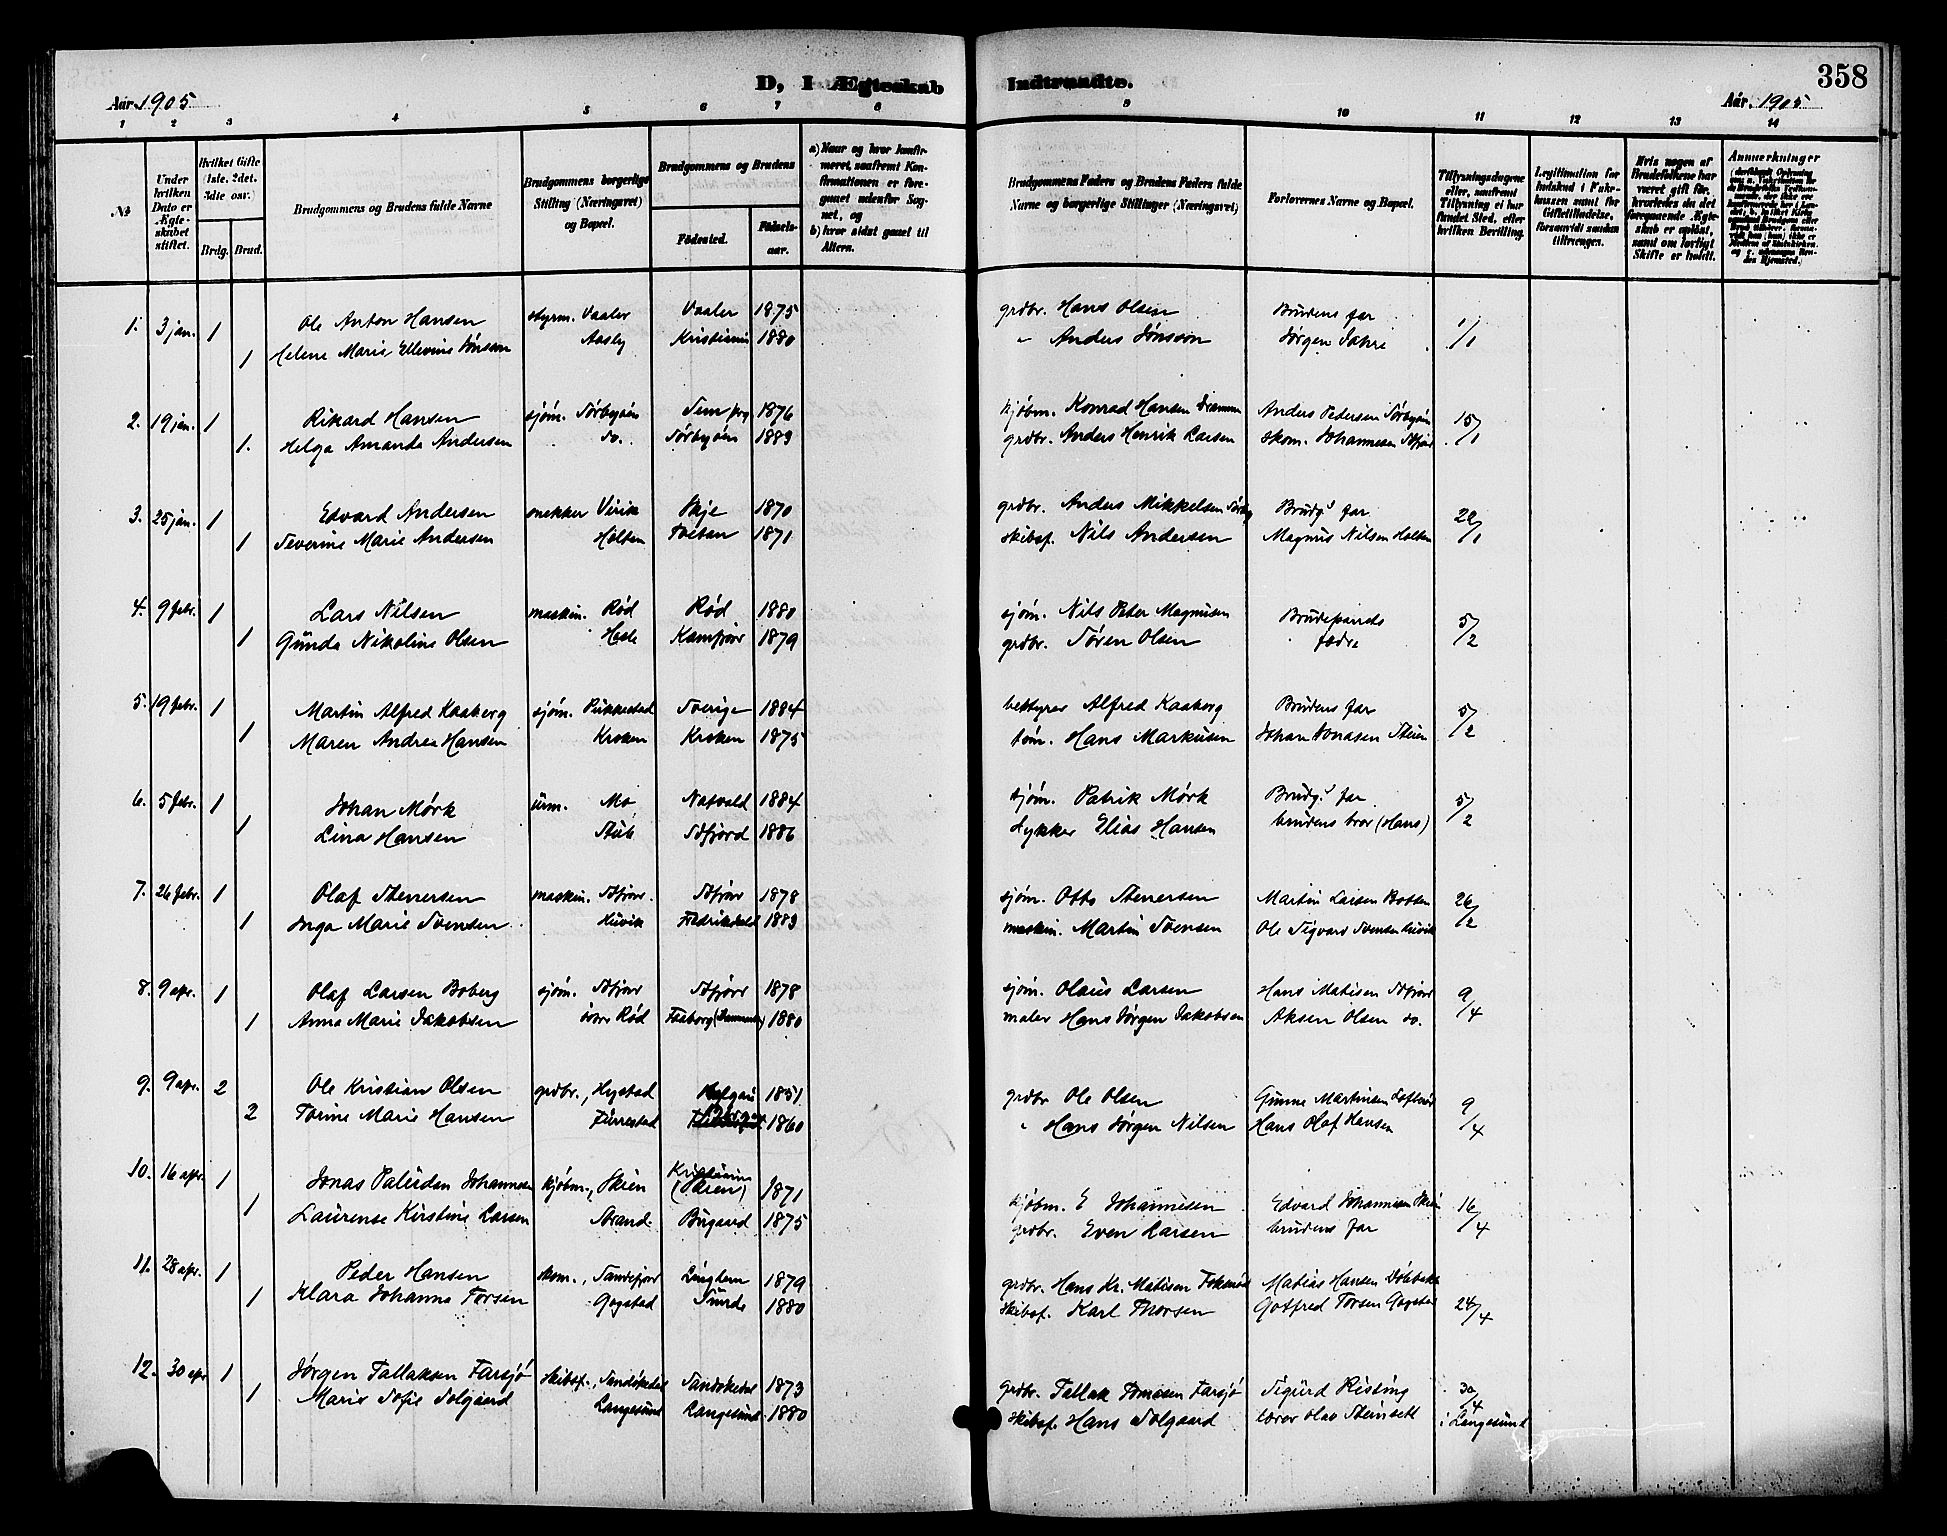 358
D, I Ægteskab Indtraadte.
Aar 1905
Aar. 1905
1 2 3 4 5 6 7 8 9 10 11 12 13 14
№
Under hvilken Dato er Ægteskabet stiftet.
Hvilket Gifte (1ste, 2det, 3die osv.)
Brdg. Brud.
Brudgommens og Brudens fulde Navne
Brudgommens borgerlige Stilling (Næringsvei) og Bopæl.
Brudgommens og Brudens
Fødested.
Fødselsaar.
a) Naar og hvor konfirmeret, saafremt Konfirmationen er foregaaet udenfor Sognet, og
b) hvor sidst gaaet til Alters.
Brudgommens Faders og Brudens Faders fulde Navne og borgerlige Stillinger (Næringsvei)
Forlovernes Navne og Bopæl.
Tillysningsdagene eller, saafremt Tillysning ei har fundet Sted, efter hvilken Bevilling.
Legitimation for Indskud i Enkekassen samt for Giftetilladelse, forsaavidt saadan tiltrænges.
Hvis nogen af Brudefolkene har været gift før, hvorledes da det foregaaende Ægteskab er opløst, samt om lovligt Skifte er holdt.
Anmærkninger
1. 3 jan. 1 Ole Anton Hansen styrm. Vaaler Vaaler 1875 grdbr. Hans Olsen Brudens far 1/1
1 Helene Marie Ellevine Jónsson Aasly Kristiania 1880 " Anders Jónsson Jørgen Jahre
2. 19 jan. 1 Rikard Hansen sjøm. Sørbyøen Sem prg 1876 kjøbm. Konrad Hansen Drammen Anders Pedersen Sørbyøen 15/1
1. Helga Amanda Andersen do. Sørbyøen 1883 grdbr. Anders Henrik Larsen skom. Johannesen Sdfjord
3. 25 jan. 1 Edvard Andersen snekker Virik Skje 1870 grdbr. Anders Mikkelsen Brudg.s far 22/1
1 Severine Marie Andersen Holtan 1871 skibsf. Nils Andersen Magnus Nilsen Holtan
4. 9 febr. 1 Lars Nilsen maskin. Rød Rød 1880 sjøm. Nils Peter Magnusen Brudeparets 5/2
1 Gunda Nikoline Olsen Hasle Kamfjord 1879 grdbr. Søren Olsen fædre
5. 19 febr. 1 Martin Alfred Kaaberg sjøm. Pukkestad Sverige 1884 bestyrer Alfred Kaaberg Brudens far 5/2
1 Maren Andrea Hansen Kroken Kroken 1875 tøm. Hans Markusen Johan Jonasen
6. 5 febr. 1 Johan Mørk urm. Mo Natvald 1884 sjøm. Patrik Mørk Brudg.s far 5/2
1 Lina Hansen Stub Sdfjord 1886 dykker Elias Hansen brudens bror (Hans)
7. 26 febr. 1 Olaf Stenersen maskin. Sdfjord Sdfjord 1878 sjøm. Otto Stenersen Martin Larsen Botten 26/2
1 Inga Marie Svensen Huvik Fredrikshald 1883 maskin. Martin Svensen Ole Sigvard Svensen Huvik
8. 9 apr. 1 Olaf Larsen Boberg sjøm. Sdfjord Sdfjord 1878 sjøm. Olaus Larsen Hans Matisen Sdfjord 9/4
1 Anna Marie Jakobsen övre Rød Faaborg (Danmark) 1880 maler Hans Jørgen Jakobsen Aksen Olsen do.
9. 9 apr. 2 Ole Kristian Olsen grdbr., Hystad 1851 grdbr Ole Olsen Gunne Martinsen 9/4
2 Torine Marie Hansen Furustad 1860 " Hans Jørgen Nilsen Hans Olaf Hansen
10. 16 apr. 1 Jonas Paludan Johannesen kjøbm., Skien Kristiania (Skien) 1871 kjøbm. E Johannesen Edvard Johannesen Skien 16/4
1 Laurense Kirstine Larsen Strand. Bugaard 1875 grdbr. Even Larsen brudens far
11. 28 apr. 1 Peder Hansen skom., Sandefjord Lingham 1879 grdbr. Hans Kr. Matisen Matias Hansen Dølebakke 24/4
1 Klara Johanne Torsen Gogstad Sunde 1880 skibsf. Karl Thorsen Gotfred Torsen Gogstad
12. 30 apr 1 Jørgen Tallaksen Farsjø skibsf., Sandøkedal Sandøkedal 1873 grdbr. Tallak Tomasen Farsjø Sigurd Risting 30/4
1 Marie Sofie Solgaard Langesund Langesund 1880 skibsf. Hans Solgaard lærer Olav Steinsett i Langesund